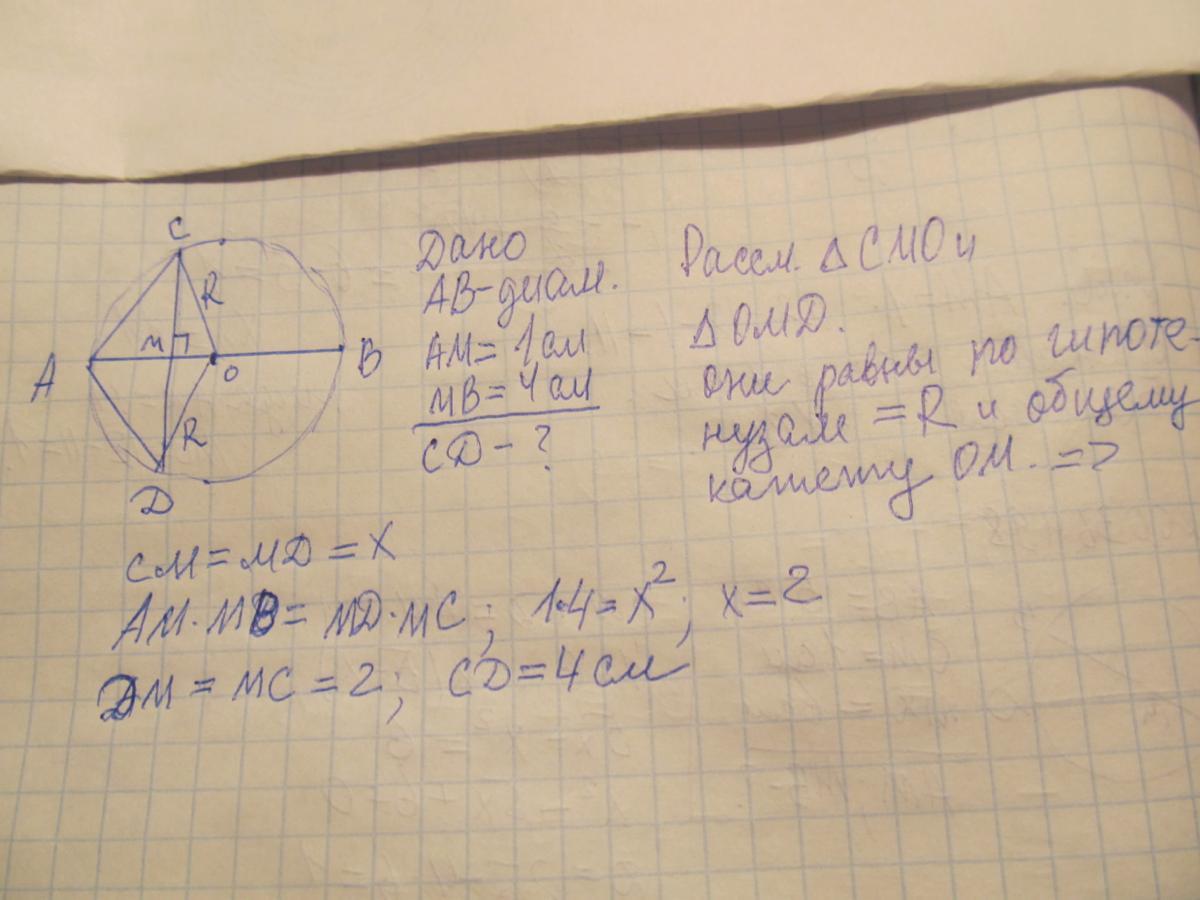 C
R
M
A
O
B
R
D
Дано
AB-диам.
AM= 1см
MB=4см
CD-?
Рассм. △CMO и
△OMD.
они равны по гипоте-
нузам =R и общему
катету OM. =>
CM=MD=X
AM·MB= MD·MC; 1·4=X²; x=2
DM = MC = 2; CD=4см